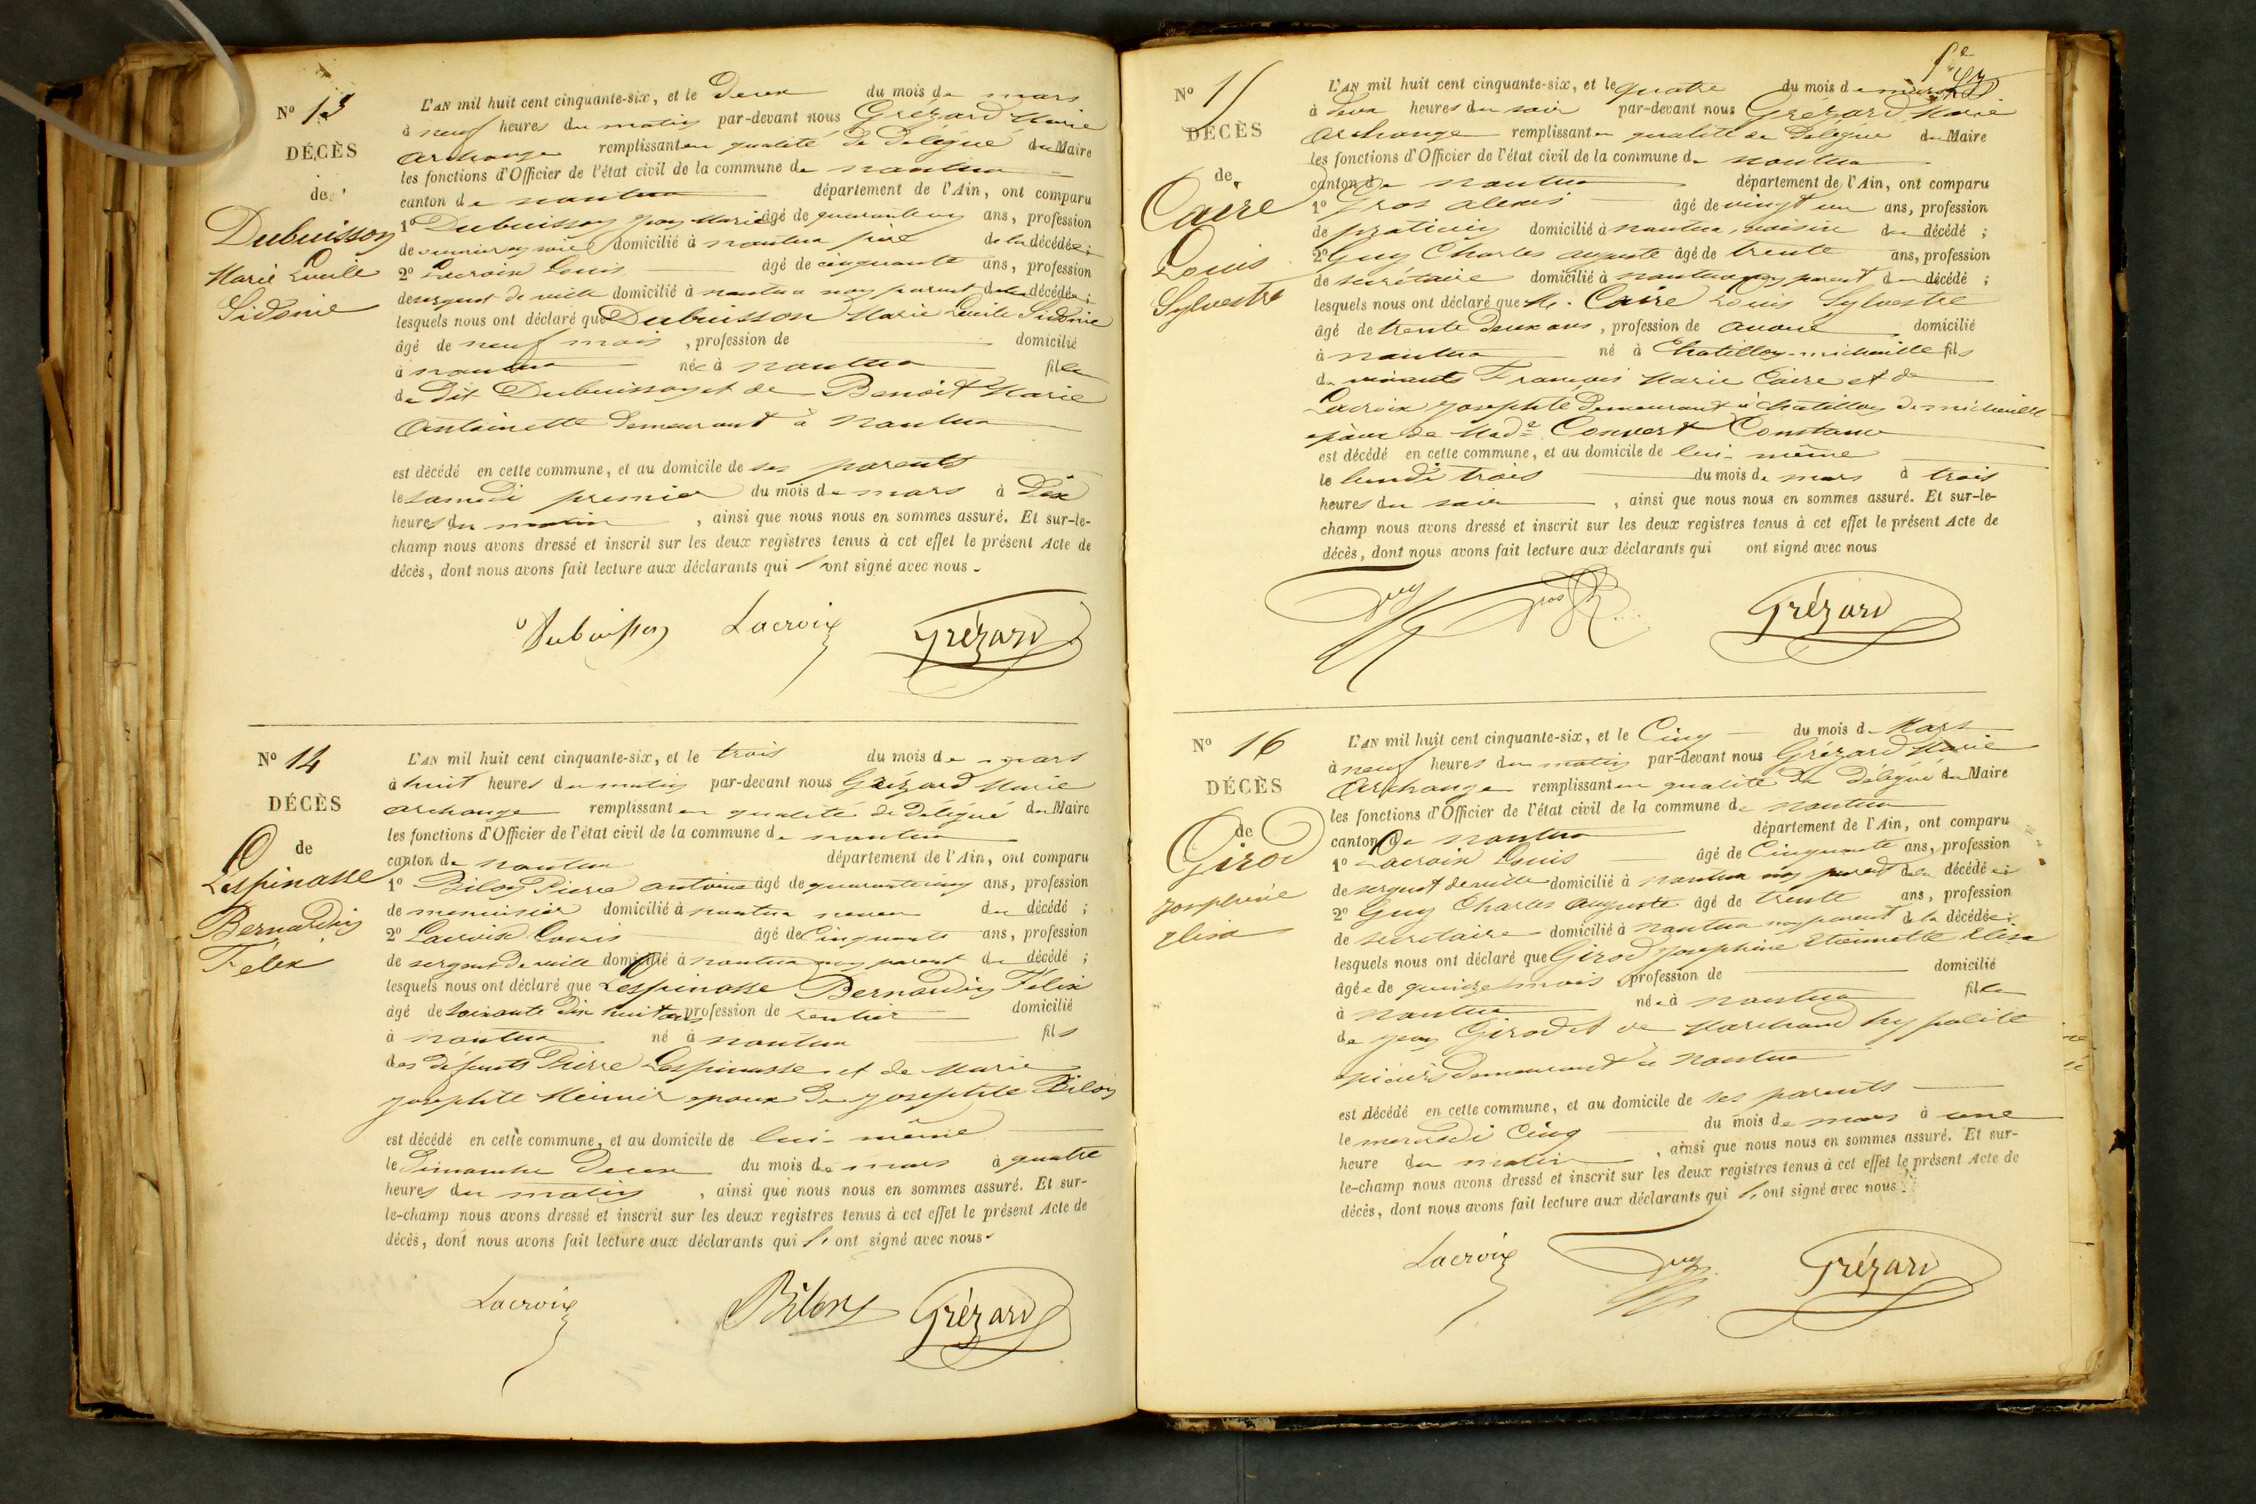 N° 13
DÉCÈS
de
Dubuisson
Marie Lucile
Sidonie
L'AN mil huit cent cinquante-six, et le deux du mois de mars
à neuf heures du matin par-devant nous Grézard Marie
Archange remplissant en qualité de délégué du Maire
les fonctions d'Officier de l'état civil de la commune de nantua
canton de nantua département de l'Ain, ont comparu
1° Dubuisson Jean Marie âgé de quarante ans, profession
de domicilié à nantua père de la décédée ;
2° Lacroix Louis âgé de cinquante ans, profession
de sergent de ville domicilié à nantua non parent de la décédée ;
lesquels nous ont déclaré que Dubuisson Marie Lucile Sidonie
âgé de neuf mois , profession de domicilié
à nantua née à nantua fille
de dit Dubuisson et de Benoit Marie
Antoinette demeurant à Nantua
est décédé en cette commune, et au domicile de ses parents
le samedi premier du mois de mars à dix
heures du matin , ainsi que nous nous en sommes assuré. Et sur-le-
champ nous avons dressé et inscrit sur les deux registres tenus à cet effet le présent Acte de
décès, dont nous avons fait lecture aux déclarants qui l'ont signé avec nous.
Dubuisson Lacroix Grézard
N° 14
DÉCÈS
de
Lespinasse
Bernardin
Felix
L'AN mil huit cent cinquante-six, et le trois du mois de mars
à huit heures du matin par-devant nous Grézard Marie
archange remplissant en qualité de délégué du Maire
les fonctions d'Officier de l'état civil de la commune de nantua
canton de nantua département de l'Ain, ont comparu
1° Bilon Pierre antoine âgé de quarante cinq ans, profession
de menuisier domicilié à nantua neveu du décédé ;
2° Lacroix Louis âgé de Cinquante ans, profession
de sergent de ville domicilié à nantua non parent du décédé ;
lesquels nous ont déclaré que Lespinasse Bernardin Félix
âgé de soixante dix huit ans profession de rentier domicilié
à nantua né à nantua fils
des défunts Pierre Lespinasse et de Marie
josephte Meunier époux de josephte Bilon
est décédé en cette commune, et au domicile de lui-même
le Dimanche deux du mois de mars à quatre
heures du matin , ainsi que nous nous en sommes assuré. Et sur-
le-champ nous avons dressé et inscrit sur les deux registres tenus à cet effet le présent Acte de
décès, dont nous avons fait lecture aux déclarants qui l'ont signé avec nous.
Lacroix Bilon Grézard
N° 15
DÉCÈS
de
Caire
Louis
Sylvestre
L'AN mil huit cent cinquante-six, et le quatre du mois de mars
à deux heures du soir par-devant nous Grézard Marie
Archange remplissant en qualité de Délégué du Maire
les fonctions d'Officier de l'état civil de la commune de nantua
canton de nantua département de l'Ain, ont comparu
1° Gros alexis âgé de vingt un ans, profession
de praticien domicilié à nantua, voisin du décédé ;
2° Guy Charles auguste âgé de trente ans, profession
de secrétaire domicilié à nantua non parent du décédé ;
lesquels nous ont déclaré que M. Caire Louis Sylvestre
âgé de trente deux ans , profession de avoué domicilié
à nantua né à Chatillon-michaille fils
de vivants François Marie Caire et de
Lacroix josephte demeurant à chatillon de michaille
époux de Made Convert Constance
est décédé en cette commune, et au domicile de lui-même
le lundi trois du mois de mars à trois
heures du soir , ainsi que nous nous en sommes assuré. Et sur-le-
champ nous avons dressé et inscrit sur les deux registres tenus à cet effet le présent Acte de
décès, dont nous avons fait lecture aux déclarants qui ont signé avec nous
Guy Gros Grézard
N° 16
DÉCÈS
de
Girod
Josephine
Elisa
L'AN mil huit cent cinquante-six, et le Cinq du mois de Mars
à neuf heures du matin par-devant nous Grézard Marie
Archange remplissant en qualité de délégué du Maire
les fonctions d'Officier de l'état civil de la commune de nantua
canton de nantua département de l'Ain, ont comparu
1° Lacroix Louis âgé de Cinquante ans, profession
de sergent de ville domicilié à nantua non parent de la décédée ;
2° Guy Charles Auguste âgé de trente ans, profession
de secretaire domicilié à nantua non parent de la décédée ;
lesquels nous ont déclaré que Girod Josephine Etiennette Elisa
âgée de quinze mois , profession de domicilié
à nantua née à nantua fille
de jean Girod et de Marchand hypolite
épiciers demeurant à Nantua
est décédé en cette commune, et au domicile de ses parents
le mercredi Cinq du mois de mars à une
heure du matin , ainsi que nous nous en sommes assuré. Et sur-
le-champ nous avons dressé et inscrit sur les deux registres tenus à cet effet le présent Acte de
décès, dont nous avons fait lecture aux déclarants qui l'ont signé avec nous.
Lacroix Guy Grézard